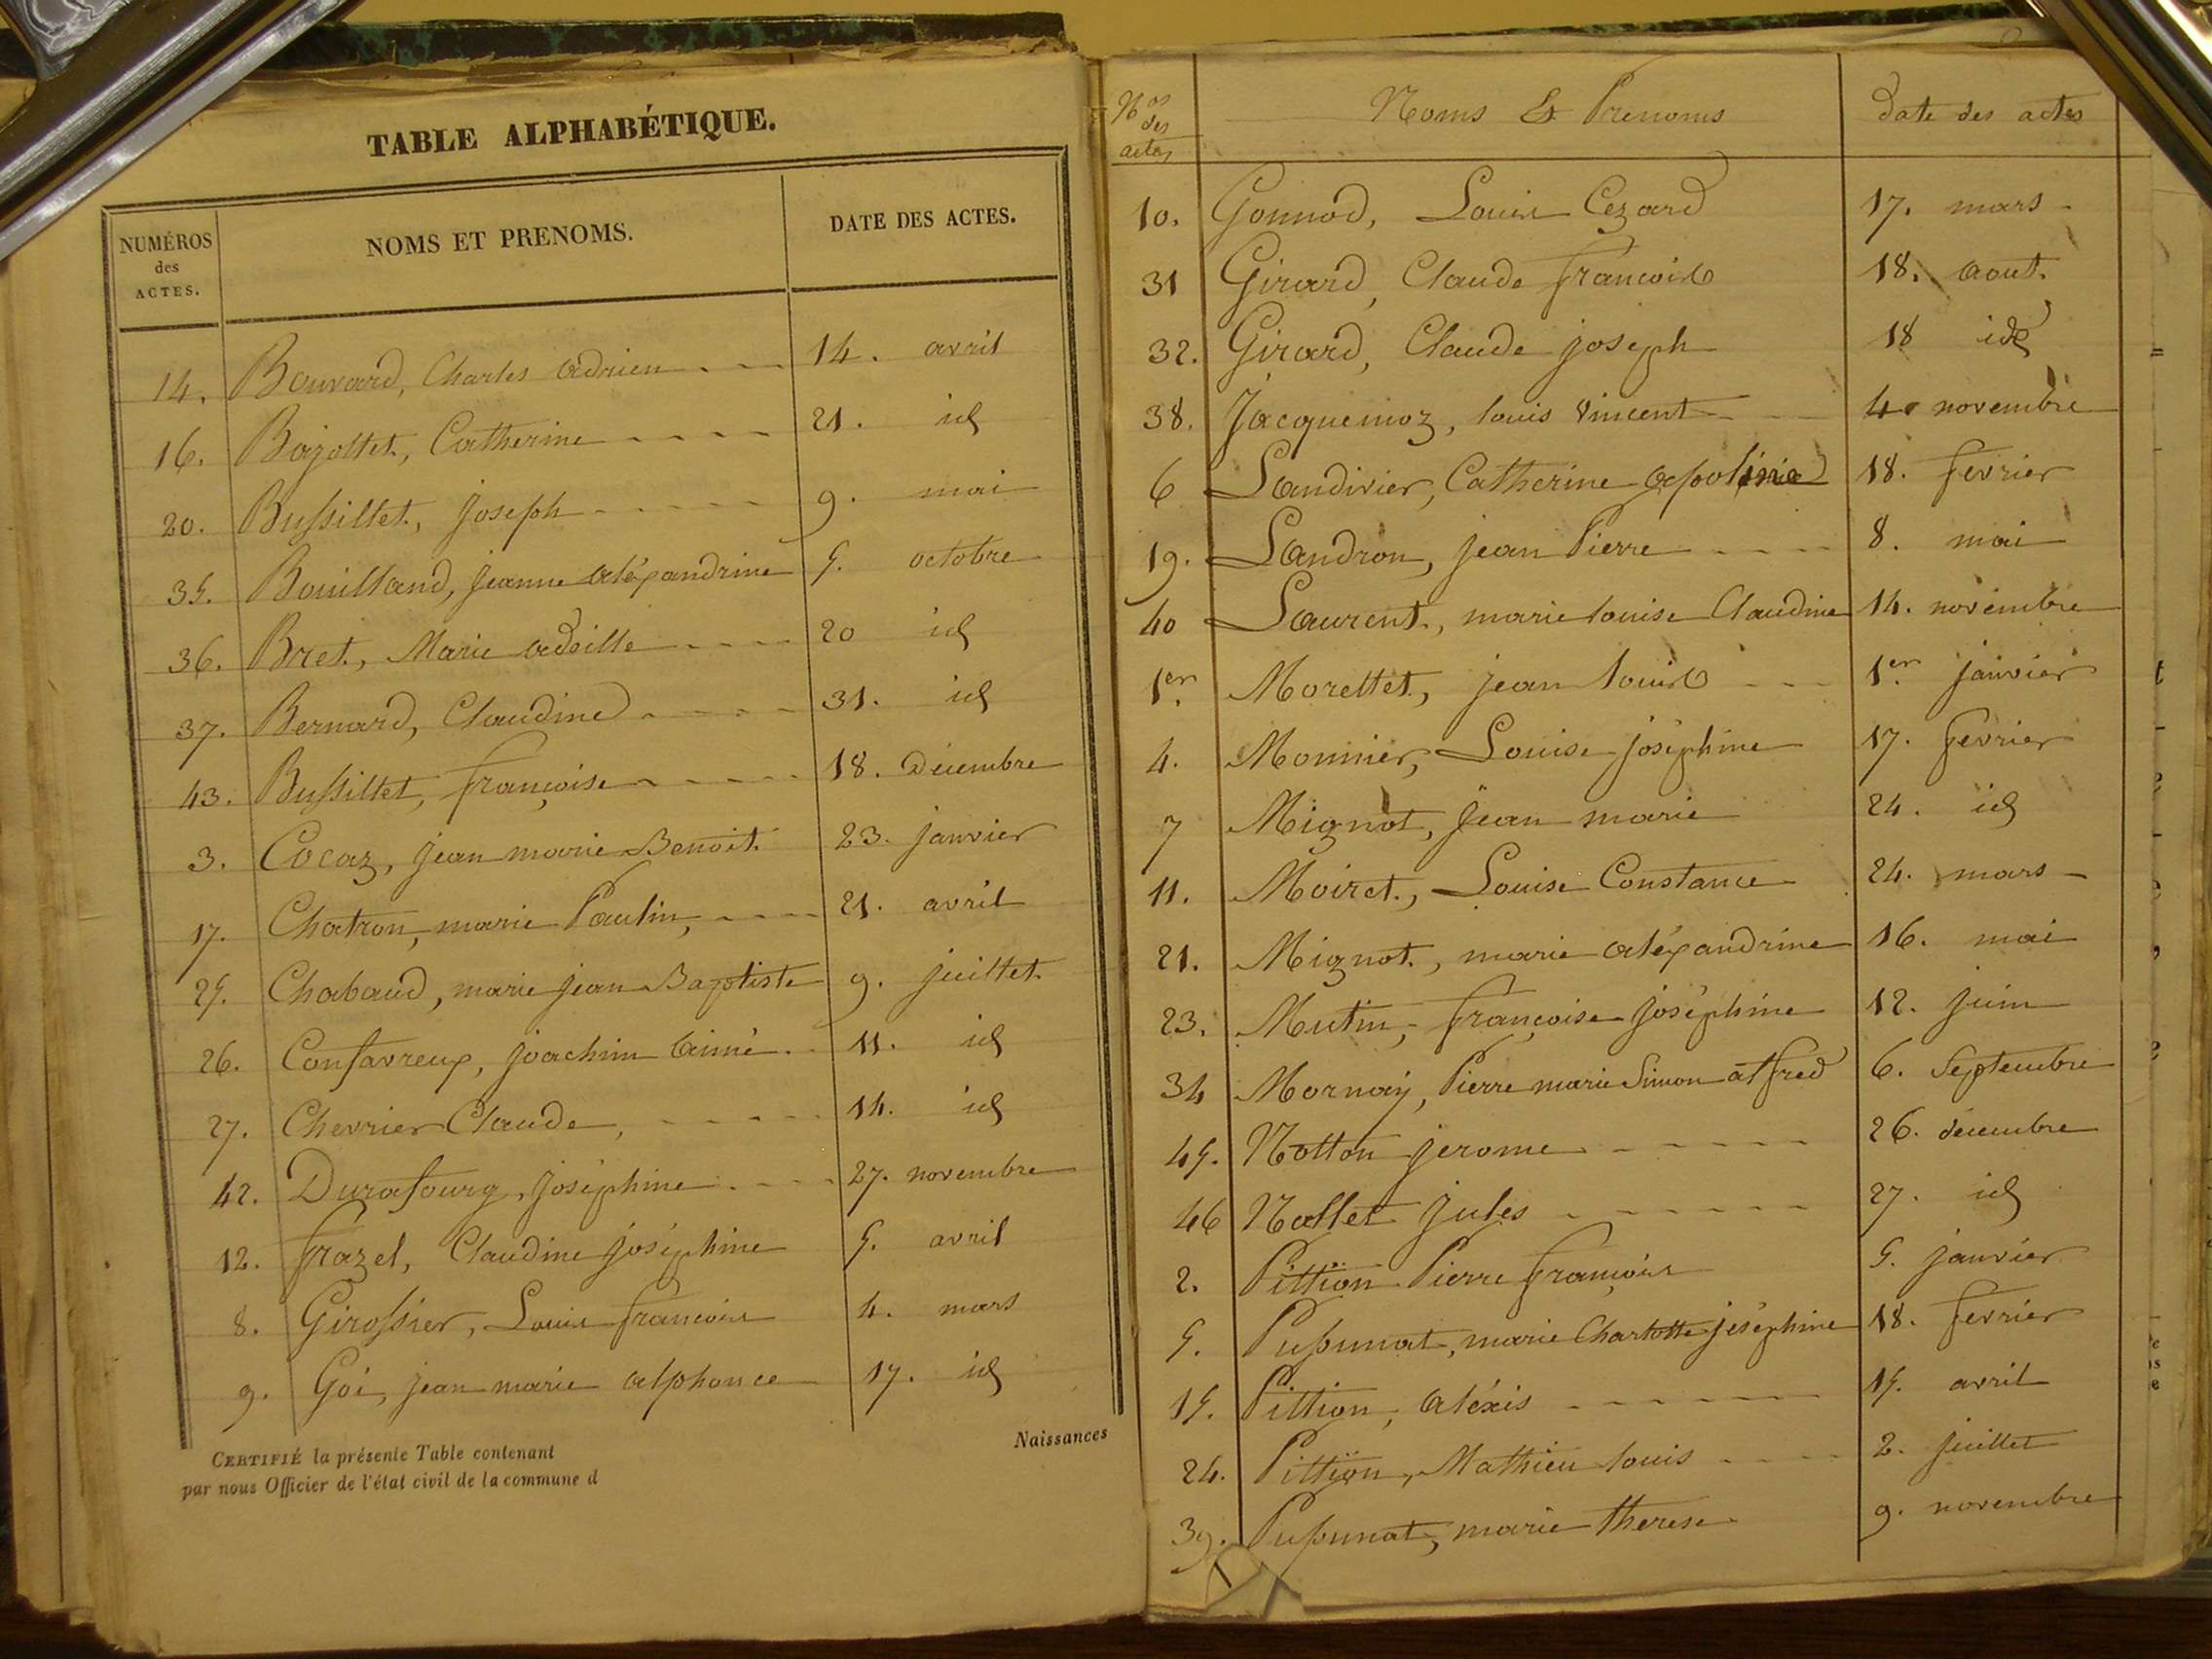 TABLE ALPHABÉTIQUE.
NUMÉROS des ACTES. NOMS ET PRENOMS. DATE DES ACTES.
14. Bouvard, Charles adrien 14. avril
16. Bajollet, Catherine 21. id
20. Bussillet, joseph 9. mai
35. Bouilland, jeanne aléxandrine 5. octobre
36. Bret, Marie adeille 20 id
37. Bernard, Claudine 31. id
43. Bussillet, françoise 18. Décembre
3. Cocaz, jean marie Benoit 23. janvier
17. Chatron, marie Paulin, 21. avril
25. Chabaud, marie jean Baptiste 9. juillet
26. Confavreux, joachim aimé 11. id
27. Chevrier Claude, 14. id
42. Durafourg, joséphine 27. novembre
12. frazel, Claudine joséphine 5. avril
8. Girossier, Louis françois 4. mars
9. Goi, jean marie alphonce 17. id
CERTIFIÉ la présente Table contenant Naissances
par nous Officier de l'état civil de la commune d
Nos des actes Noms Et Prenoms date des actes
10. Gonnod, Louis Cezard 17. mars
31 Girard, Claude françois 18. aout.
32. Girard, Claude joseph 18 id
38. Jacquemoz, louis vincent 4 novembre
6 Landivier, Catherine apolinie 18. fevrier
19. Landron, jean Pierre 8. mai
40 Laurent, marie louise Claudine 14. novembre
1er. Morellet, jean louis 1er janvier
4. Monnier, Louise joséphine 17. fevrier
7 Mignot, jean marie 24. id
11. Moiret, Louise Constance 24. mars
21. Mignot, marie aléxandrine 16. mai
23. Mutin, françoise joséphine 12. juin
34 Mornay, Pierre marie Simon alfred 6. Septembre
45. Notton jerome 26. décembre
46 Nallet jules 27. id
2. Pittion Pierre françois 5. janvier
5. Pupunat, marie Charlotte joséphine 18. fevrier
15. Pittion, aléxis 15. avril
24. Pittion, Mathieu louis 2. juillet
39. Pupunat, marie therese 9. novembre